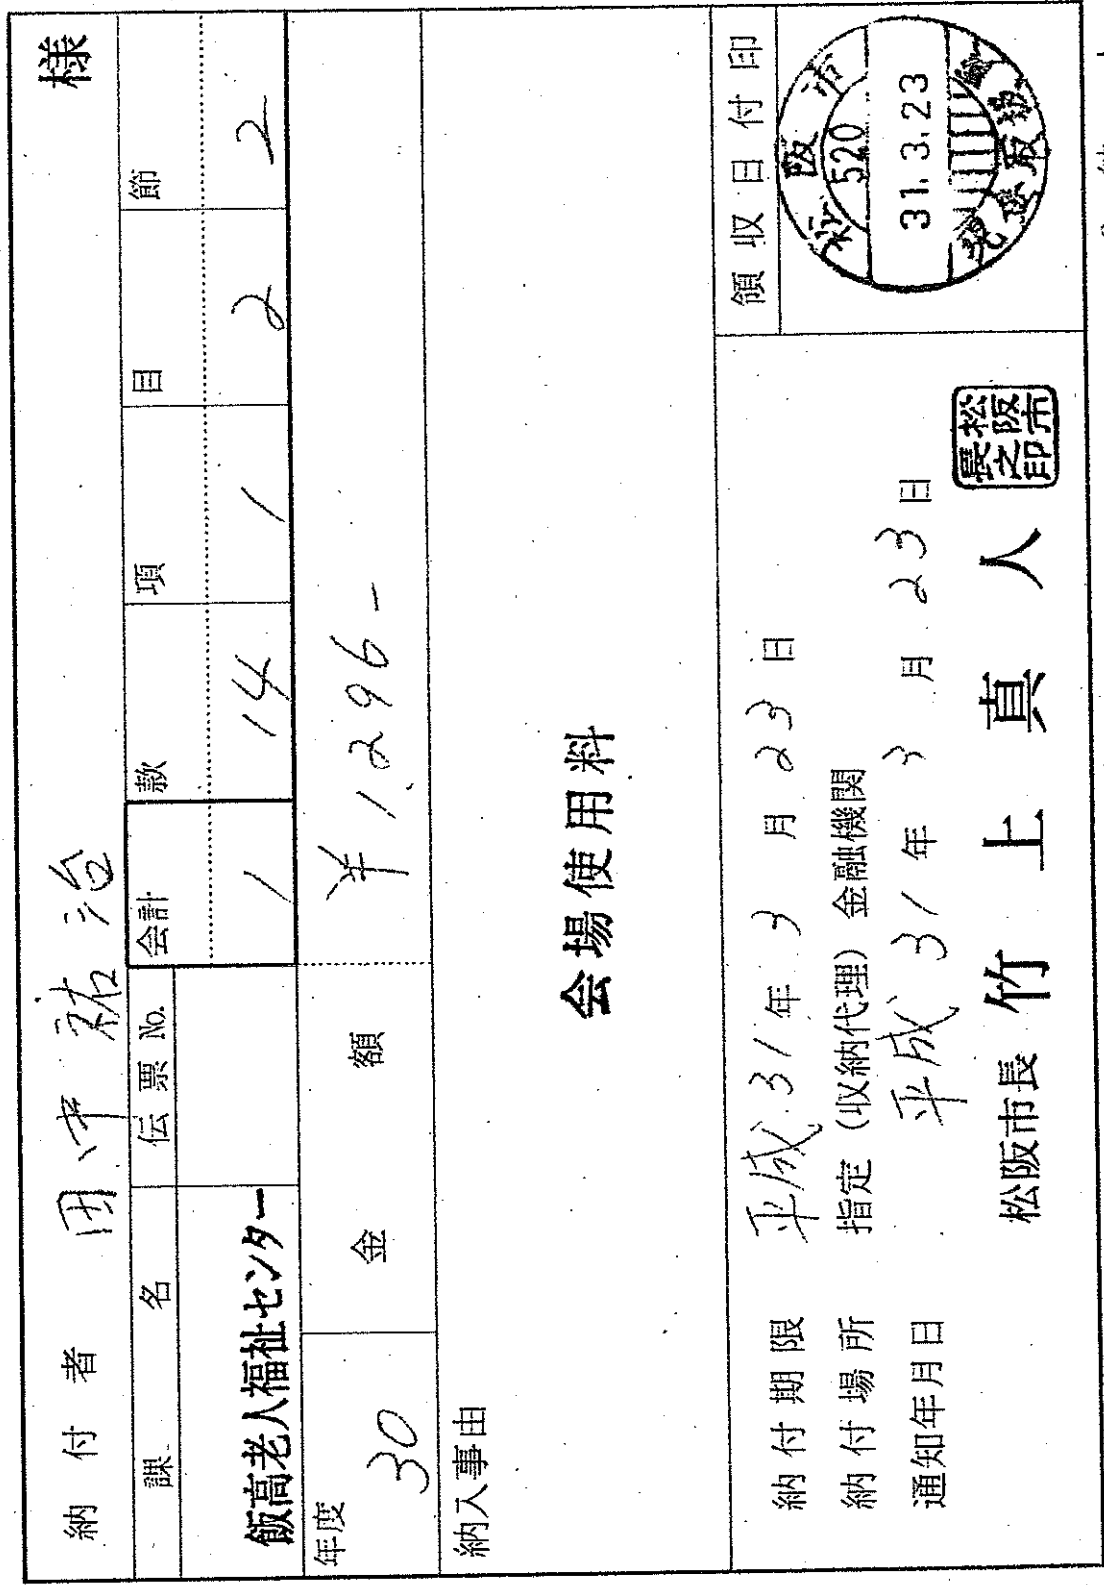 納付者 田中祐治 様
課名 伝票No. 会計 款 項 目 節
飯高老人福祉センター 1 14 1 2 2
年度 30 金額 ¥1,296-
納入事由
会場使用料
納付期限 平成31年3月23日
納付場所 指定(収納代理)金融機関
通知年月日 平成31年3月23日
松阪市長 竹上真人
松阪市長之印
領収日付印
松阪市
520
31.3.23